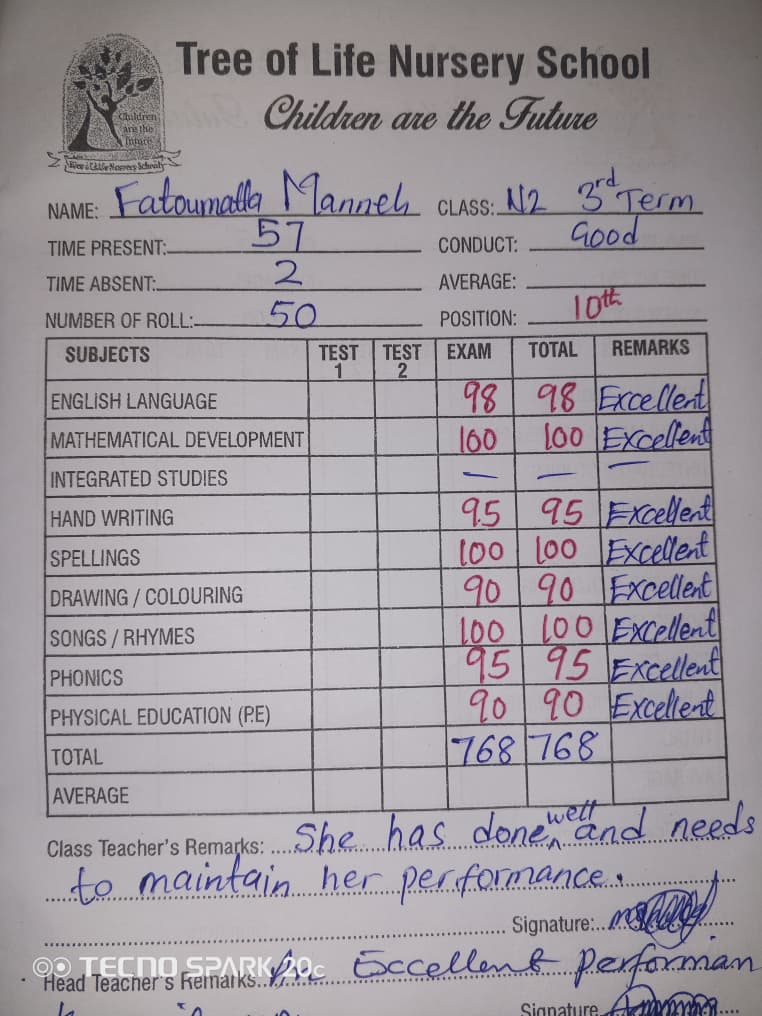 Tree of Life Nursery School
Children are the Future
Children
are the
future
Tree of Life Nursery School
NAME: Fatoumatta Manneh CLASS: N2 3rd Term
TIME PRESENT: 57 CONDUCT: Good
TIME ABSENT: 2 AVERAGE:
NUMBER OF ROLL: 50 POSITION: 10th
SUBJECTS TEST 1 TEST 2 EXAM TOTAL REMARKS
ENGLISH LANGUAGE 98 98 Excellent
MATHEMATICAL DEVELOPMENT 100 100 Excellent
INTEGRATED STUDIES — — —
HAND WRITING 95 95 Excellent
SPELLINGS 100 100 Excellent
DRAWING / COLOURING 90 90 Excellent
SONGS / RHYMES 100 100 Excellent
PHONICS 95 95 Excellent
PHYSICAL EDUCATION (P.E) 90 90 Excellent
TOTAL 768 768
AVERAGE
Class Teacher's Remarks: She has done well and needs
to maintain her performance.
Signature:
TECNO SPARK 20C
Head Teacher's Remarks Excellent Performan
Signature